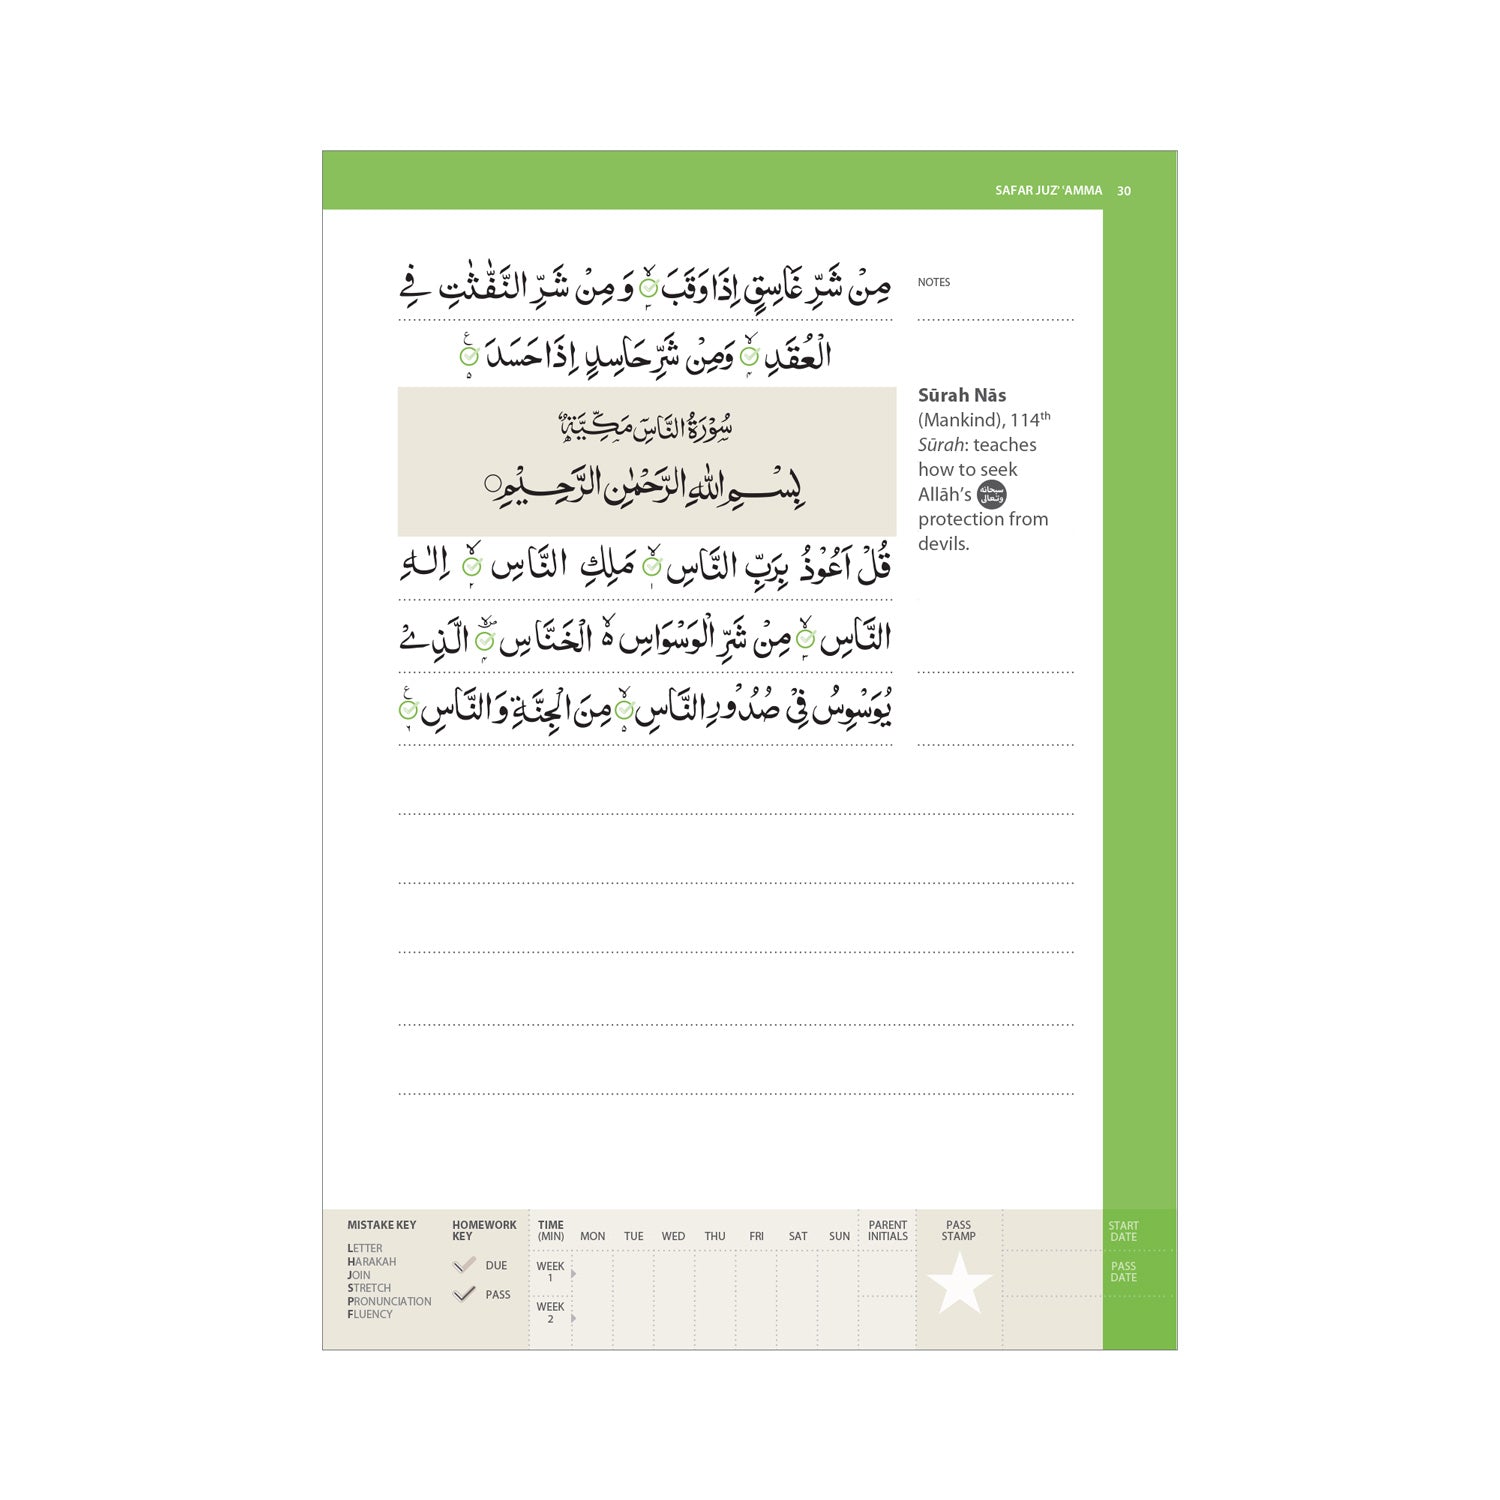 SAFAR JUZ' 'AMMA 30
مِنْ شَرِّ غَاسِقٍ اِذَا وَقَبَ ۙ۳ وَ مِنْ شَرِّ النَّفّٰثٰتِ فِي
الْعُقَدِ ۙ۴ وَمِنْ شَرِّ حَاسِدٍ اِذَا حَسَدَ ۧ۵
سُوْرَةُ النَّاسِ مَكِّيَّةٌ
بِسْمِ اللّٰهِ الرَّحْمٰنِ الرَّحِيْمِ ○
قُلْ اَعُوْذُ بِرَبِّ النَّاسِ ۙ۱ مَلِكِ النَّاسِ ۙ۲ اِلٰهِ
النَّاسِ ۙ۳ مِنْ شَرِّ الْوَسْوَاسِ ۙ۬ الْخَنَّاسِ ۪ۙ۴ الَّذِيْ
يُوَسْوِسُ فِيْ صُدُوْرِ النَّاسِ ۙ۵ مِنَ الْجِنَّةِ وَالنَّاسِ ۧ۶
NOTES
Sūrah Nās
(Mankind), 114th
Sūrah: teaches
how to seek
Allāh's سبحانه وتعالى
protection from
devils.
MISTAKE KEY
LETTER
HARAKAH
JOIN
STRETCH
PRONUNCIATION
FLUENCY
HOMEWORK
KEY
DUE
PASS
TIME
(MIN) MON TUE WED THU FRI SAT SUN
WEEK
1
WEEK
2
PARENT
INITIALS
PASS
STAMP
START
DATE
PASS
DATE